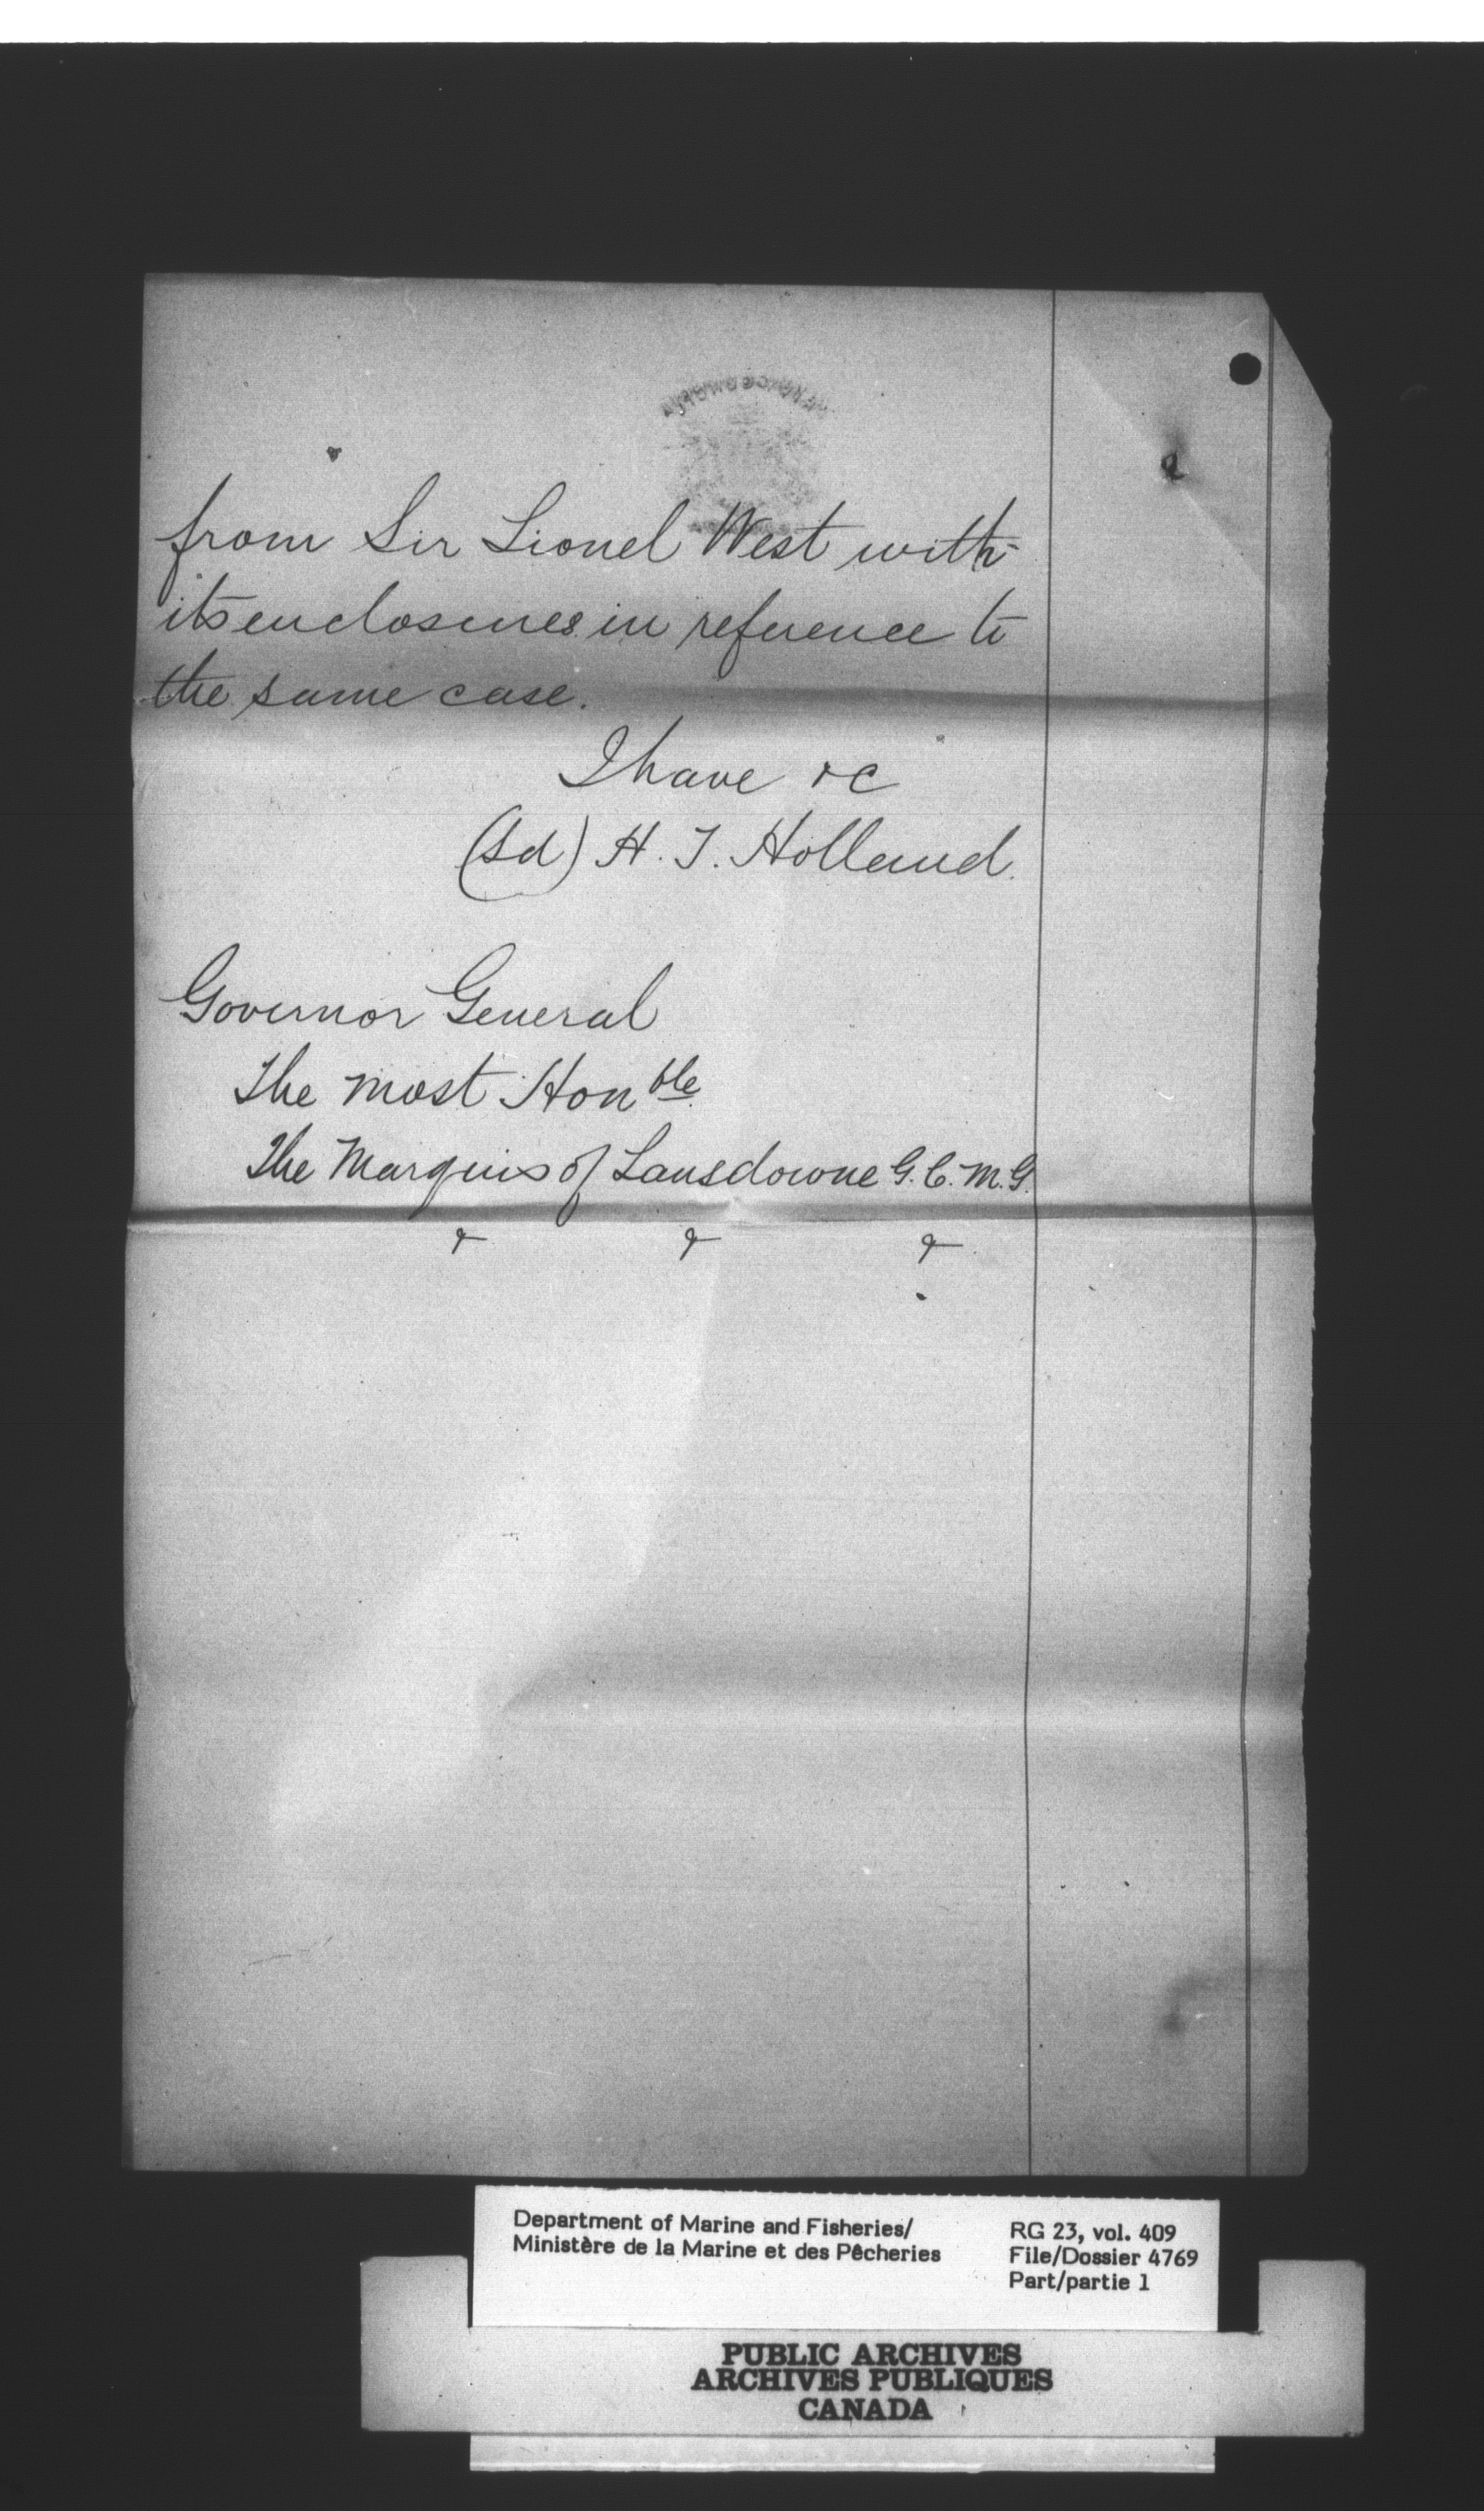 from Sir Lionel West with
its enclosures in reference to
the same case.
I have &c
(sd) H. T. Holland.
Governor General
The Most Honble.
The Marquis of Lansdowne G.C.M.G.
& & &
Department of Marine and Fisheries/
Ministère de la Marine et des Pêcheries
RG 23, vol. 409
File/Dossier 4769
Part/partie 1
PUBLIC ARCHIVES
ARCHIVES PUBLIQUES
CANADA